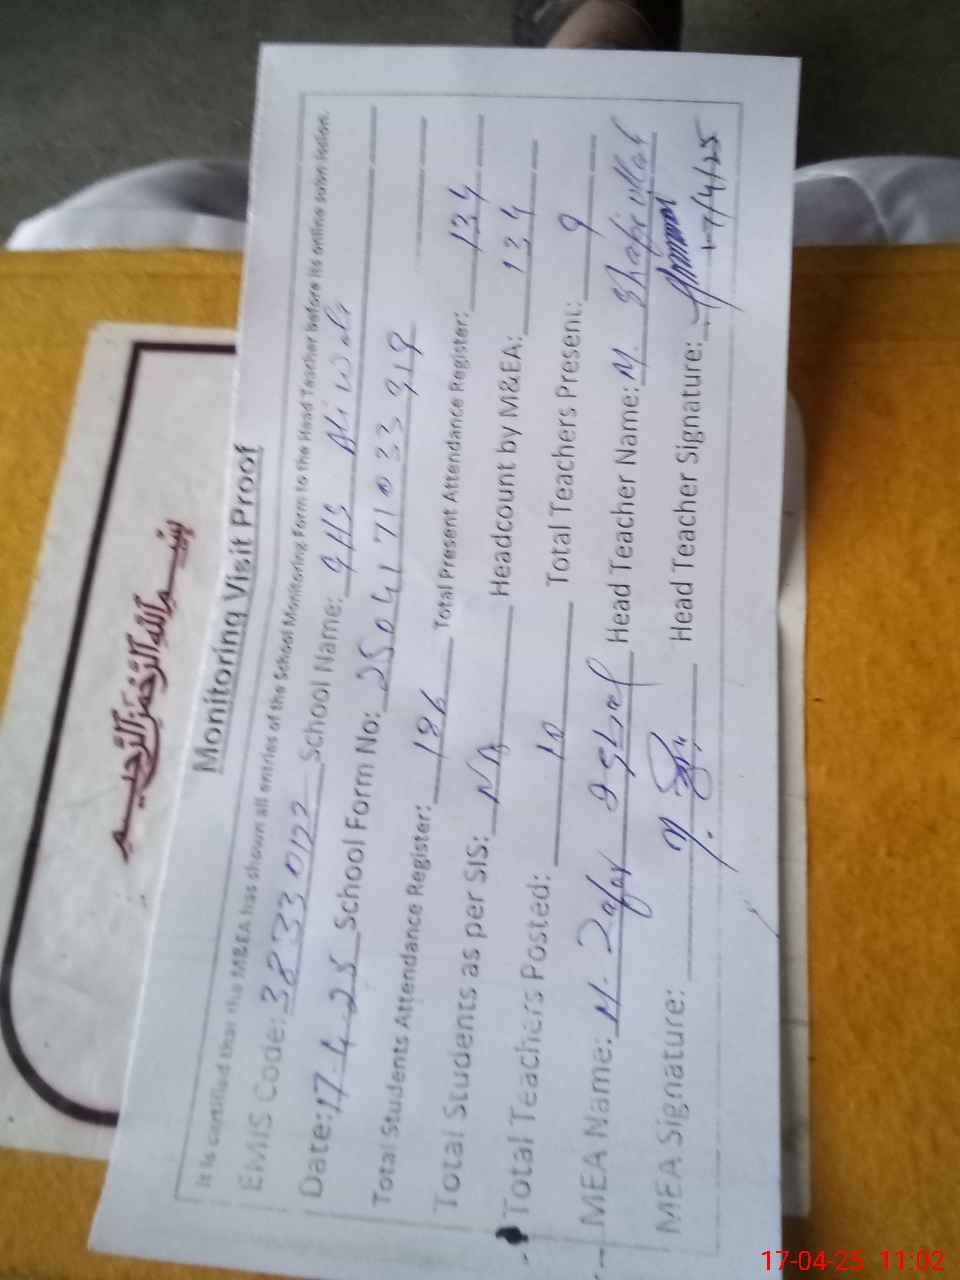 بسم الله الرحمن الرحيم
Monitoring Visit Proof
It is certified that the M&EA has shown all entries of the School Monitoring Form to the Head Teacher before its online submission.
EMIS Code: 38330122 School Name: GHS Ali Wali
Date: 17-4-25 School Form No: 2504171033919
Total Students Attendance Register: 186 Total Present Attendance Register: 134
Total Students as per SIS: NA Headcount by M&EA: 134
Total Teachers Posted: 10 Total Teachers Present: 9
MEA Name: M. Zafar Iqbal Head Teacher Name: M. Shafiullah
MEA Signature: Head Teacher Signature:
17/4/25
17-04-25 11:02